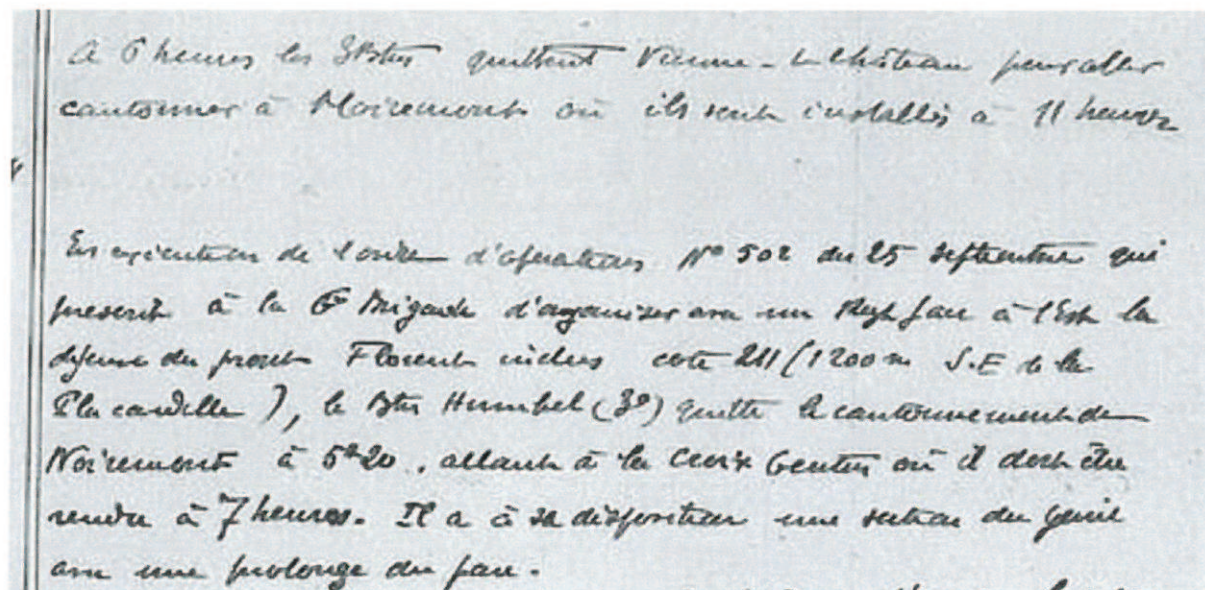 A 6 heures les 3 Btns quittent Vienne-le-Château pour aller
cantonner à Moiremont où ils sont installés à 11 heures
En exécution de l'ordre d'opérations N° 502 du 25 septembre qui
prescrit à la 6e Brigade d'organiser avec un Regt face à l'Est la
défense du front Florent inclus cote 211 (1200m S.E de la
Placardelle), le Btn Humbel (3e) quitte le cantonnement de
Moiremont à 5h20, allant à la Croix Gentin où il doit être
rendu à 7 heures. Il a à sa disposition une section du génie
avec une prolonge du parc.